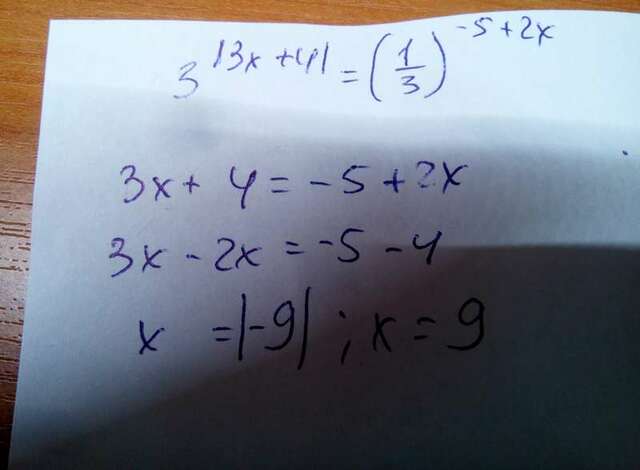 3^|3x+4| = (1/3)^-5+2x
3x + 4 = -5 + 2x
3x - 2x = -5 - 4
x = |-9| ; x = 9